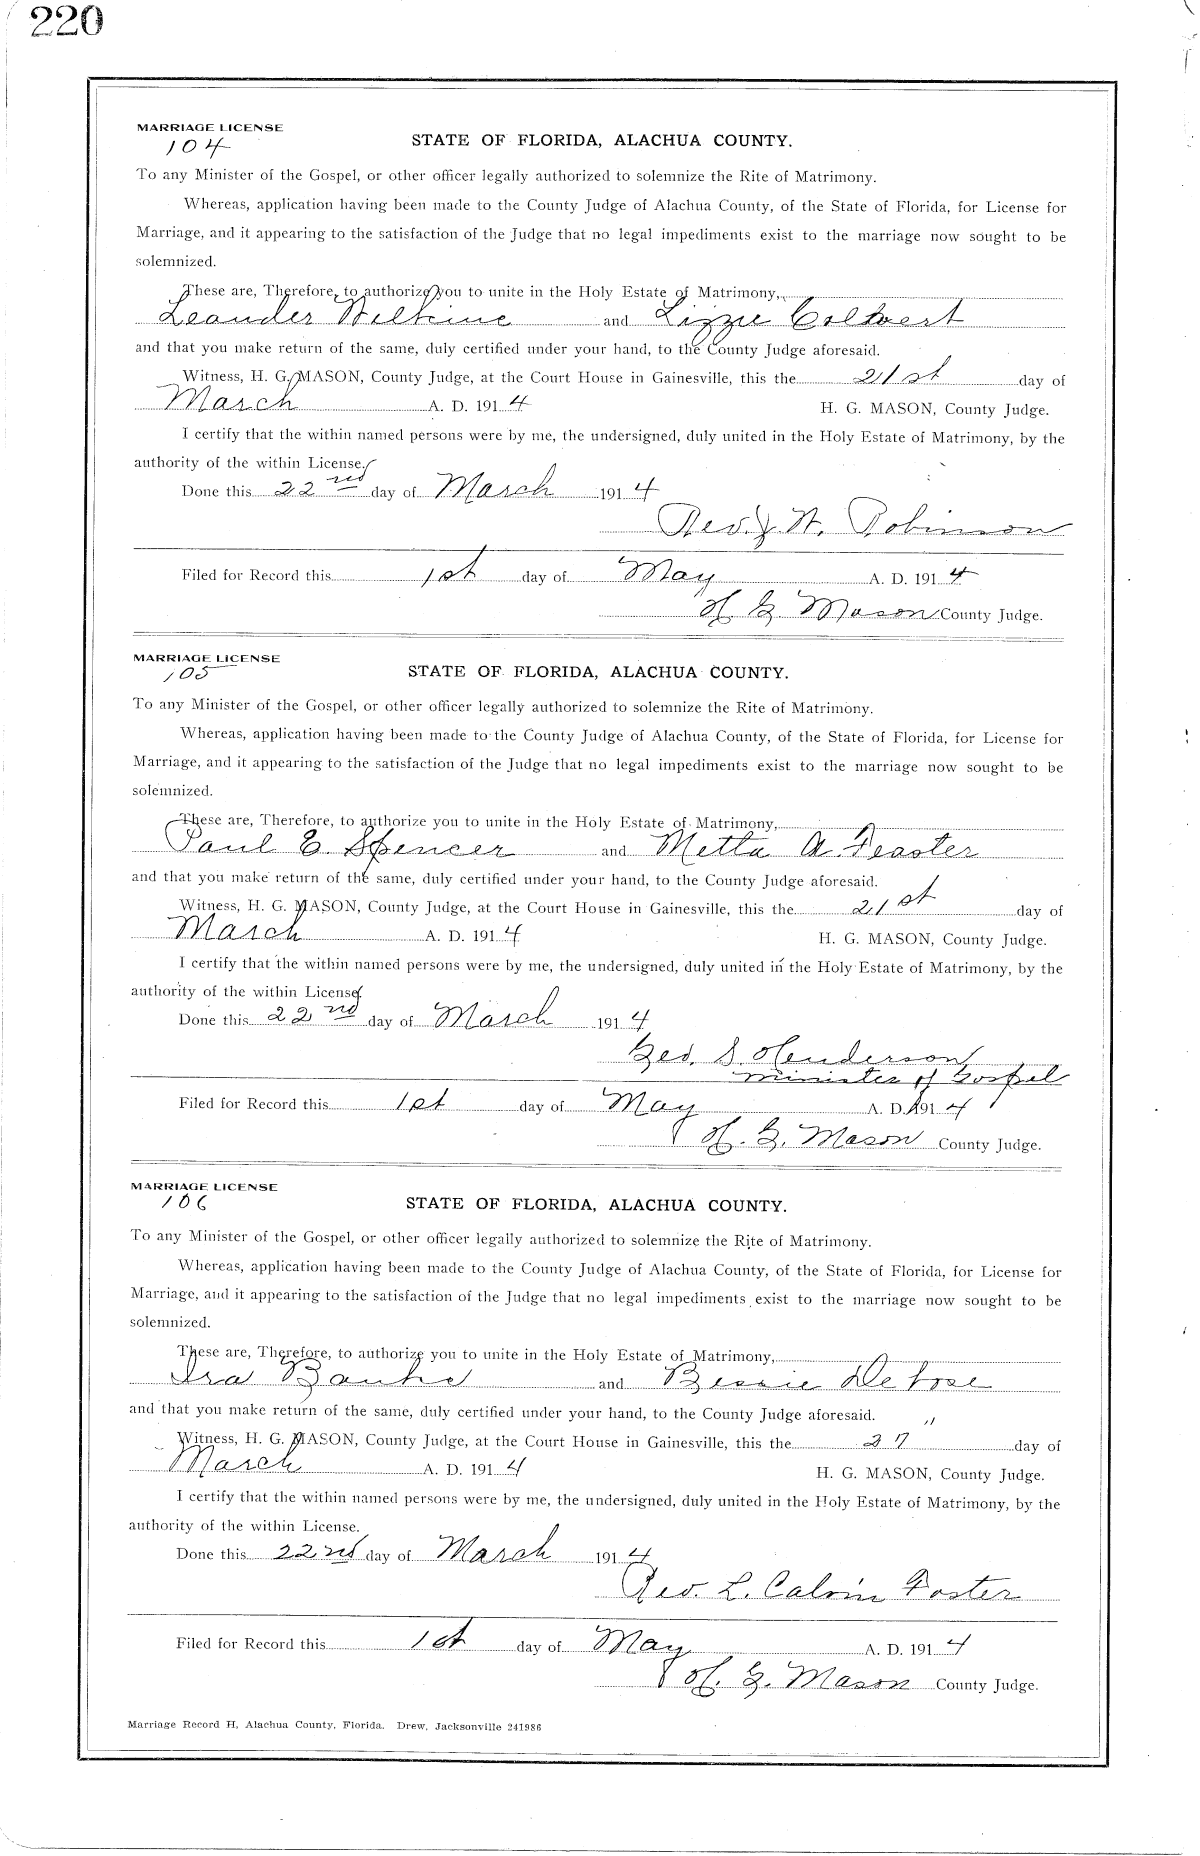 220
MARRIAGE LICENSE
104
STATE OF FLORIDA, ALACHUA COUNTY.
To any Minister of the Gospel, or other officer legally authorized to solemnize the Rite of Matrimony.
Whereas, application having been made to the County Judge of Alachua County, of the State of Florida, for License for
Marriage, and it appearing to the satisfaction of the Judge that no legal impediments exist to the marriage now sought to be
solemnized.
These are, Therefore, to authorize you to unite in the Holy Estate of Matrimony,
Leander Wilkins and Lizzie Colbert
and that you make return of the same, duly certified under your hand, to the County Judge aforesaid.
Witness, H. G. MASON, County Judge, at the Court House in Gainesville, this the 21st day of
March A. D. 1914 H. G. MASON, County Judge.
I certify that the within named persons were by me, the undersigned, duly united in the Holy Estate of Matrimony, by the
authority of the within License.
Done this 22nd day of March 1914
Rev. J. W. Robinson
Filed for Record this 1st day of May A. D. 1914
H. G. Mason County Judge.
MARRIAGE LICENSE
105
STATE OF FLORIDA, ALACHUA COUNTY.
To any Minister of the Gospel, or other officer legally authorized to solemnize the Rite of Matrimony.
Whereas, application having been made to the County Judge of Alachua County, of the State of Florida, for License for
Marriage, and it appearing to the satisfaction of the Judge that no legal impediments exist to the marriage now sought to be
solemnized.
These are, Therefore, to authorize you to unite in the Holy Estate of Matrimony,
Paul E. Spencer and Metta A. Feaster
and that you make return of the same, duly certified under your hand, to the County Judge aforesaid.
Witness, H. G. MASON, County Judge, at the Court House in Gainesville, this the 21st day of
March A. D. 1914 H. G. MASON, County Judge.
I certify that the within named persons were by me, the undersigned, duly united in the Holy Estate of Matrimony, by the
authority of the within License.
Done this 22nd day of March 1914
Geo. S. Henderson
Minister of Gospel
Filed for Record this 1st day of May A. D. 1914
H. G. Mason County Judge.
MARRIAGE LICENSE
106
STATE OF FLORIDA, ALACHUA COUNTY.
To any Minister of the Gospel, or other officer legally authorized to solemnize the Rite of Matrimony.
Whereas, application having been made to the County Judge of Alachua County, of the State of Florida, for License for
Marriage, and it appearing to the satisfaction of the Judge that no legal impediments exist to the marriage now sought to be
solemnized.
These are, Therefore, to authorize you to unite in the Holy Estate of Matrimony,
Ira Banks and Bessie
and that you make return of the same, duly certified under your hand, to the County Judge aforesaid.
Witness, H. G. MASON, County Judge, at the Court House in Gainesville, this the 27" day of
March A. D. 1914 H. G. MASON, County Judge.
I certify that the within named persons were by me, the undersigned, duly united in the Holy Estate of Matrimony, by the
authority of the within License.
Done this 22nd day of March 1914
Rev. L. Calvin Foster
Filed for Record this 1st day of May A. D. 1914
H. G. Mason County Judge.
Marriage Record H, Alachua County, Florida. Drew, Jacksonville 241986